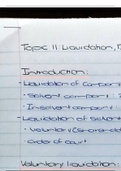 Topic 11 Liquidation,
Introduction:
Liquidation of compan
Solvent compan
Insolvent compan
Liquidation of solvent
Voluntary
order of court
Voluntary liquidation: